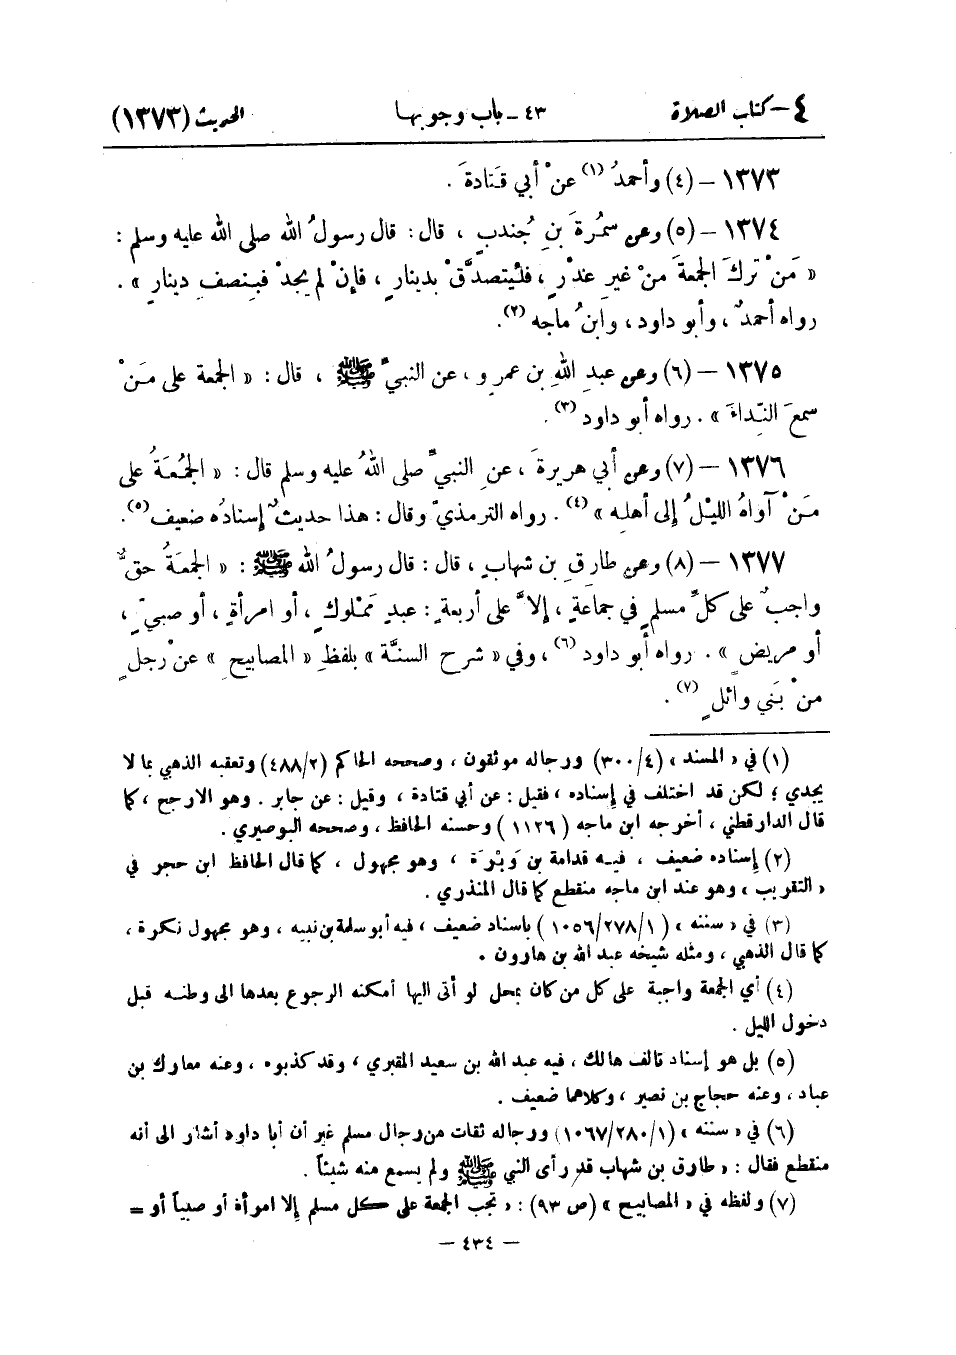 ٤ – كتاب الصلاة ٤٣ – باب وجوبها الحديث (١٣٧٣)
١٣٧٣ – (٤) وأحمدُ (١) عنْ أبي قَتادةَ .
١٣٧٤ – (٥) وعن سمُرةَ بنِ جُندبٍ ، قال : قال رسولُ الله صلى الله عليه وسلم :
« مَنْ تركَ الجمعةَ منْ غيرِ عذْرٍ ، فلْيتصدَّقْ بدينارٍ ، فإنْ لم يجدْ فبنصفِ دينارٍ » .
رواه أحمدُ ، وأبو داود ، وابنُ ماجه (٢) .
١٣٧٥ – (٦) وعن عبدِ اللهِ بن عمرٍو ، عن النبيِّ ﷺ ، قال : « الجمعة على مَنْ
سمعَ النِّداءَ » . رواه أبو داود (٣) .
١٣٧٦ – (٧) وعن أبي هريرةَ ، عنِ النبيِّ صلى اللهُ عليه وسلم قال : « الجُمُعَةُ على
مَنْ آواهُ الليْلُ إلى أهلِه » (٤) . رواه الترمذيّ وقال : هذا حديثٌ إسنادُه ضعيف (٥) .
١٣٧٧ – (٨) وعن طارقِ بن شهابٍ ، قال : قال رسولُ الله ﷺ : « الجمعَةُ حقٌّ
واجبٌ على كلِّ مسلمٍ في جماعَةٍ ، إلاَّ على أربعةٍ : عبدٍ مَمْلوكٍ ، أو امرأةٍ ، أو صبيٍّ ،
أو مريضٍ » . رواه أبو داود (٦) ، وفي « شرح السنَّة » بلفظِ « المصابيحِ » عنْ رجلٍ
منْ بَني وائلٍ (٧) .
(١) في « المسند » (٣٠٠/٤) ورجاله موثقون ، وصححه الحاكم (٤٨٨/٢) وتعقبه الذهبي بما لا
يجدي ؛ لكن قد اختلف في إسناده ، فقيل : عن أبي قتادة ، وقيل : عن جابر . وهو الارجح ، كما
قال الدارقطني ، أخرجه ابن ماجه ( ١١٢٦ ) وحسنه الحافظ ، وصححه البوصيري .
(٢) إسناده ضعيف ، فيه قدامة بن وَبْرَة ، وهو مجهول ، كما قال الحافظ ابن حجر في
« التقريب » وهو عند ابن ماجه منقطع كما قال المنذري .
(٣) في « سننه » ( ١٠٥٦/٢٧٨/١ ) باسناد ضعيف ، فيه أبو سلمة بن نبيه ، وهو مجهول نكرة ،
كما قال الذهبي ، ومثله شيخه عبد الله بن هارون .
(٤) أي الجمعة واجبة على كل من كان بمحل لو أتى اليها أمكنه الرجوع بعدها الى وطنه قبل
دخول الليل .
(٥) بل هو إسناد تالف هالك ، فيه عبد الله بن سعيد المقبري ، وقد كذبوه ، وعنه معارك بن
عباد ، وعنه حجاج بن نصير ، وكلاهما ضعيف .
(٦) في « سننه » (١٠٦٧/٢٨٠/١) ورجاله ثقات من رجال مسلم غير أن أبا داود أشار الى أنه
منقطع فقال : « طارق بن شهاب قد رأى النبي ﷺ ولم يسمع منه شيئاً .
(٧) ولفظه في « المصابيح » (ص ٩٣) : « تجب الجمعة على كل مسلم إلا امرأة أو صبياً أو =
– ٤٣٤ –